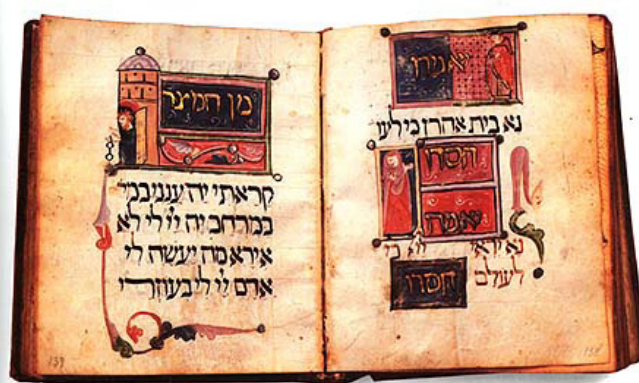 יאמרו
נא בית אהרן כי לעו
חסדו
יאמרו
נא יראי ייי כי
לעולם
חסדו
מן המצר
קראתי יה ענני במר
במרחב יה ייי לי לא
אירא מה יעשה לי
אדם ייי לי בעוזרי
139